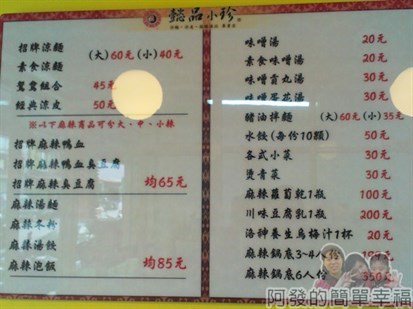 懿品小珍
招牌涼麵
(大)60元(小)40元
素食涼麵
鴛鴦組合 45元
經典涼皮 50元
※以下麻辣商品可分大、中、小辣
招牌麻辣鴨血
招牌麻辣鴨血臭豆腐
招牌麻辣臭豆腐 均65元
麻辣湯麵
麻辣冬粉
麻辣湯餃
麻辣泡飯 均85元
味噌湯 20元
素食味噌湯 20元
味噌貢丸湯 30元
味噌蛋花湯 30元
豬油拌麵 (大)60元(小)35元
水餃(每份10顆) 50元
各式小菜 30元
燙青菜 30元
麻辣蘿蔔乾1瓶 100元
川味豆腐乳1瓶 200元
洛神養生烏梅汁1杯 20元
麻辣鍋底3~4人份
麻辣鍋底6人份 350元
阿發的簡單幸福